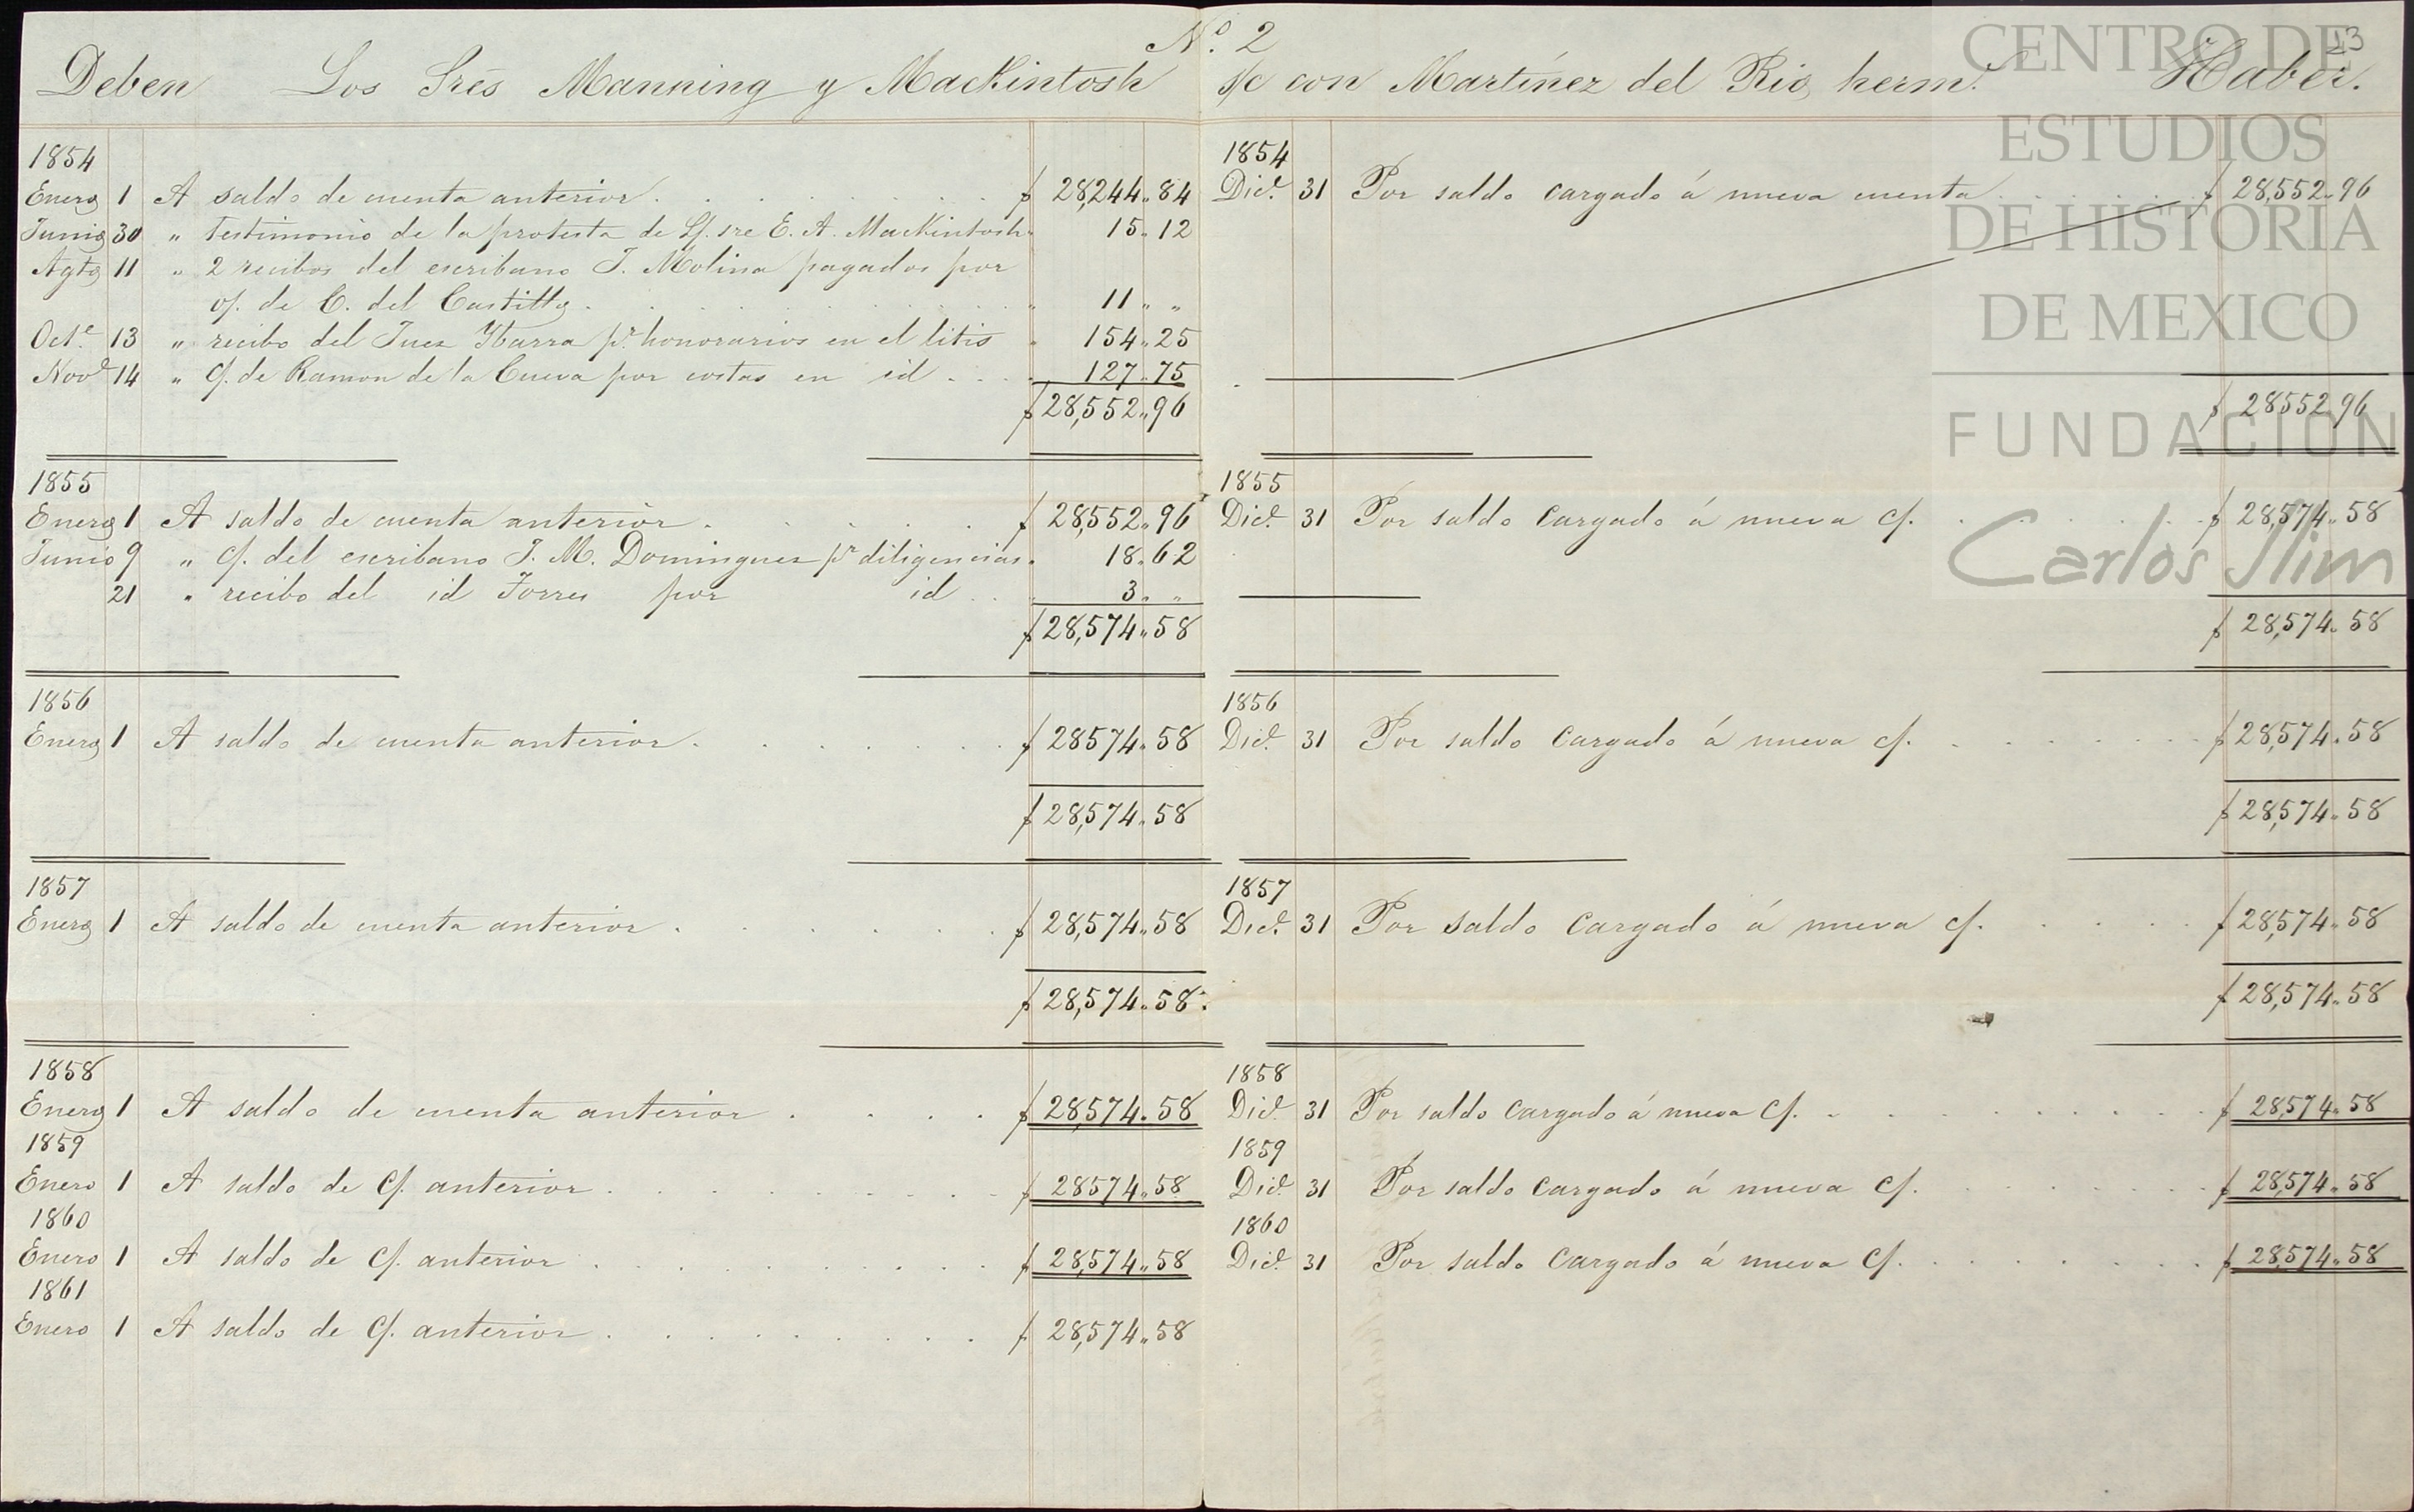 Nº. 2
13
Deben Los Sres Manning y MacKintosh s/c con Martínez del Rio, herms. Haber.
1854
Enero 1 A saldo de cuenta anterior . . . . . $ 28,244,,84
Junio 30 " testimonio de la protesta de Lf. sre E. A. MacKintosh " 15,,12
Agto 11 " 2 recibos del escribano J. Molina pagados por
of. de C. del Castillo . . . . . " 11,, "
Octe. 13 " recibo del Juez Ybarra pr. honorarios en el litis " 154,,25
Nove 14 " c/. de Ramon de la Cueva por costas en id . . . 127,,75
$ 28,552,,96
1855
Enero 1 A saldo de cuenta anterior . . . . . $ 28,552,,96
Junio 9 " c/. del escribano J. M. Dominguez pr diligencias " 18,,62
21 " recibo del id Torres por id . . 3,, "
$ 28,574,,58
1856
Enero 1 A saldo de cuenta anterior . . . . . $ 28574,,58
$ 28,574,,58
1857
Enero 1 A saldo de cuenta anterior . . . . . $ 28,574,,58
$ 28,574,,58
1858
Enero 1 A saldo de cuenta anterior . . . . $ 28,574,,58
1859
Enero 1 A saldo de c/. anterior . . . . . $ 28574,,58
1860
Enero 1 A saldo de c/. anterior . . . . . $ 28,574,,58
1861
Enero 1 A saldo de c/. anterior . . . . . $ 28,574,,58
1854
Dice. 31 Por saldo cargado á nueva cuenta . . . . . $ 28,552,,96
$ 28552,,96
1855
Dice. 31 Por saldo cargado á nueva c/. . . . . . $ 28,574,,58
$ 28,574,,58
1856
Dice. 31 Por saldo cargado á nueva c/. . . . . . $ 28,574,,58
$ 28,574,,58
1857
Dice. 31 Por saldo cargado á nueva c/. . . . . . $ 28,574,,58
$ 28,574,,58
1858
Dice. 31 Por saldo cargado á nueva c/. . . . . . $ 28,574,,58
1859
Dice. 31 Por saldo cargado á nueva c/. . . . . . $ 28,574,,58
1860
Dice. 31 Por saldo cargado á nueva c/. . . . . . $ 28,574,,58
CENTRO DE
ESTUDIOS
DE HISTORIA
DE MEXICO
FUNDACIÓN
Carlos Slim